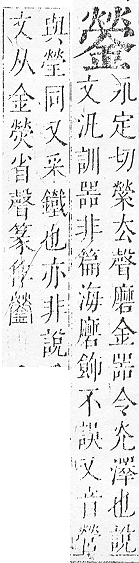 鎣
烏定切縈去聲磨金器令光澤也說
文汎訓器非篇海磨飾不誤又音瑩
與瑩同又采鐵也亦非說
文从金熒省聲篆作鎣